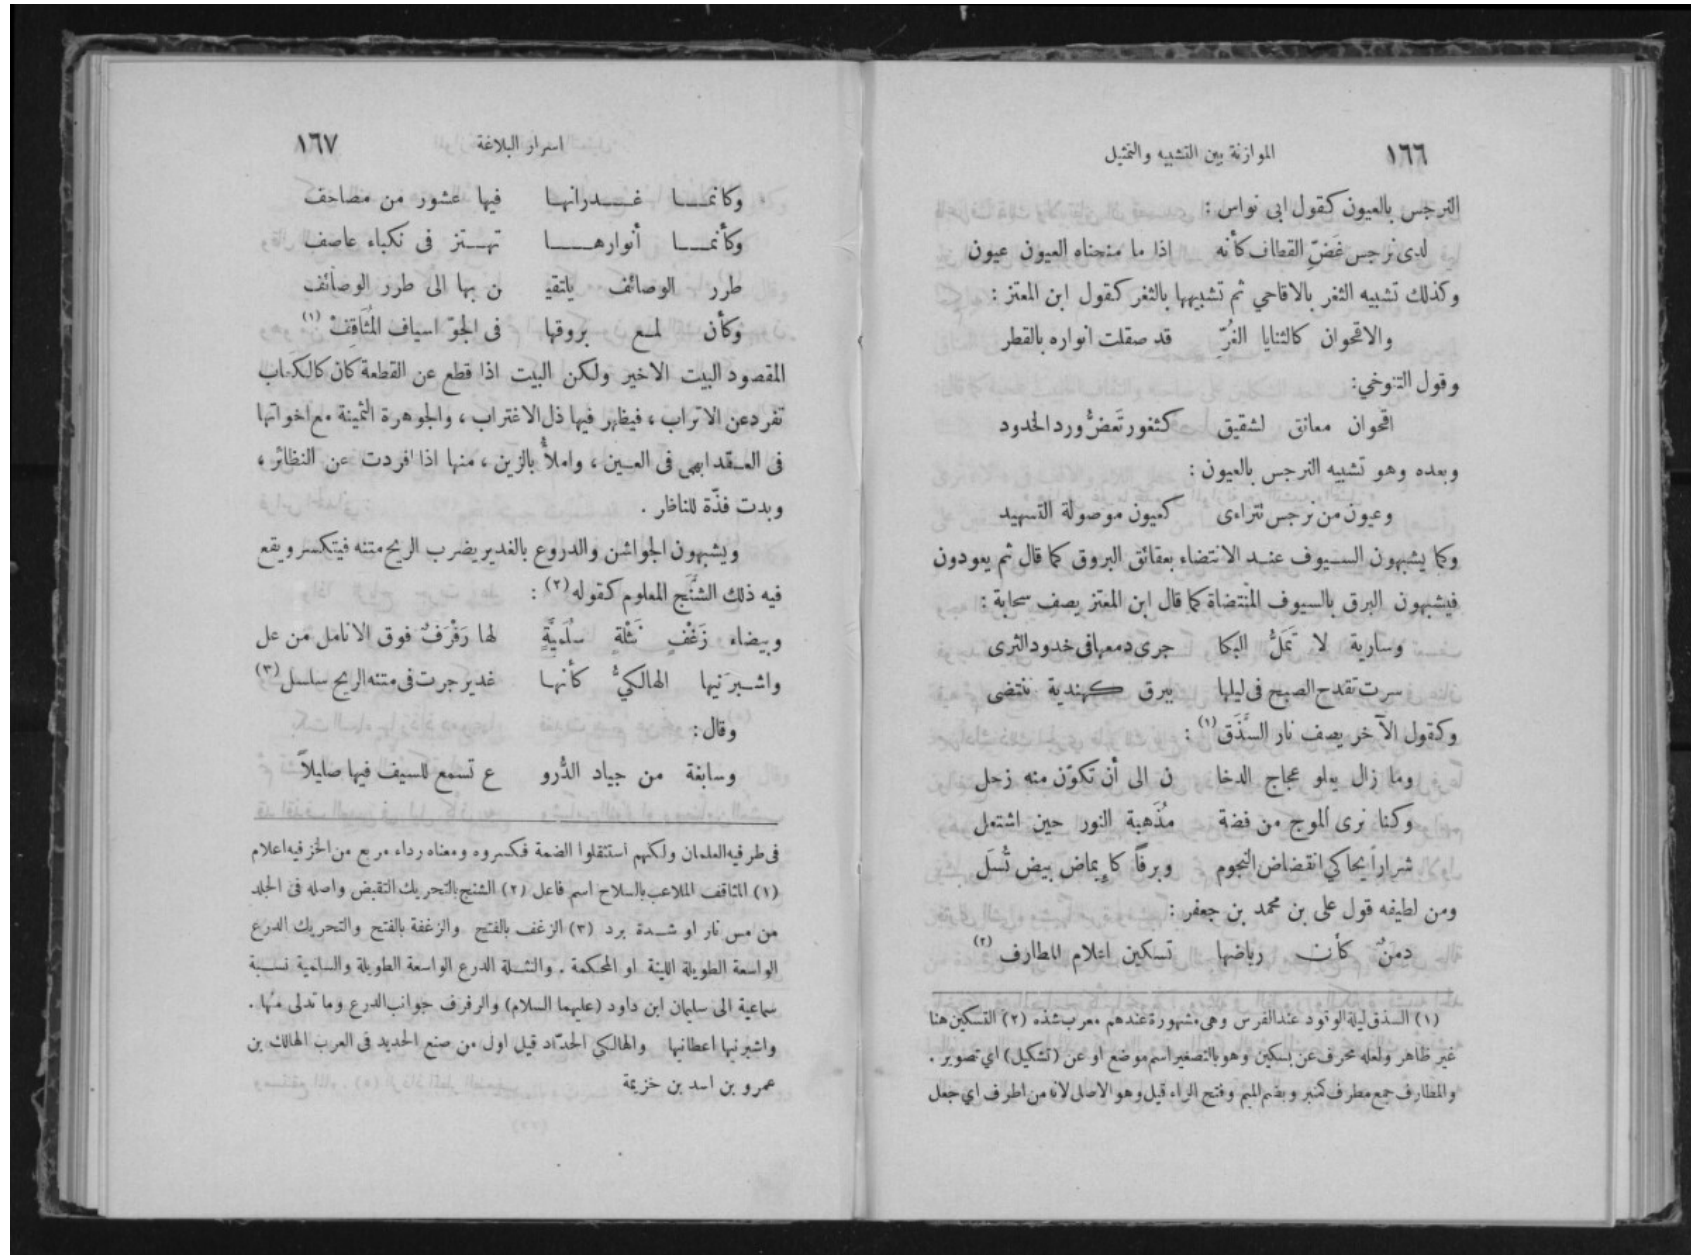 ١٦٦ الموازنة بين التشبيه والتمثيل
النرجس بالعيون كقول ابى نواس :
لدى نرجس غَضِّ القطاف كأنه اذا ما منحناه العيون عيون
وكذلك تشبيه الثغر بالاقاحي ثم تشبيهها بالثغر كقول ابن المعتز :
والاقحوان كالثنايا الغُرِّ قد صقلت انواره بالقطر
وقول التنوخي :
اقحوان معانق لشقيق كثغور تَعَضُّ ورد الخدود
وبعده وهو تشبيه النرجس بالعيون :
وعيون من نرجس تتراءى كعيون موصولة التسهيد
وكما يشبهون السيوف عند الانتضاء بعقائق البروق كما قال ثم يعودون
فيشبهون البرق بالسيوف المنتضاة كما قال ابن المعتز يصف سحابة :
وسارية لا تَمَلُّ البكا جرى دمعها فى خدود الثرى
سرت تقدح الصبح فى ليلها ببرق كهندية تنتضى
وكقول الآخر يصف نار السَّذَق (١) :
وما زال يعلو عجاج الدخا ن الى أن تكوّن منه زحل
وكنا نرى الموج من فضة مُذَهبة النور حين اشتعل
شراراً يحاكي انقضاض النجوم وبرقاً كإيماض بيض تُسَل
ومن لطيفه قول على بن محمد بن جعفر :
دمنٌ كأن رياضها تسكين اعلام المطارف (٢)
(١) السذق ليلة الوقود عند الفرس وهى مشهورة عندهم معرب شذه (٢) التسكين هنا
غير ظاهر ولعله محرف عن بسكين وهو بالتصغير اسم موضع او عن (تشكيل) اي تصوير .
والمطارف جمع مطرف كمنبر وبضم الميم وفتح الراء قيل وهو الاصل لانه من اطرف اي جعل
اسرار البلاغة ١٦٧
وكأنما غدرانها فيها عشور من مصاحف
وكأنما أنوارها تهتز فى نكباء عاصف
طرر الوصائف يلتقيـ ن بها الى طرر الوصائف
وكأن لمع بروقها فى الجوّ اسياف المُثاقِفْ (١)
المقصود البيت الاخير ولكن البيت اذا قطع عن القطعة كان كالكعاب
تفرد عن الاتراب ، فيظهر فيها ذل الاغتراب ، والجوهرة الثمينة مع اخواتها
فى العقد ابهى فى العين ، واملأ بالزين ، منها اذا افردت عن النظائر ،
وبدت فذّة للناظر .
ويشبهون الجواشن والدروع بالغدير يضرب الريح متنه فيتكسر ويقع
فيه ذلك الشَّنَج المعلوم كقوله (٢) :
وبيضاء زَغْفٍ نَثْلَةٍ سُلَميَّةٍ لها رَفْرَفٌ فوق الانامل من عل
واشبرَنيها الهالكيُّ كأنها غدير جرت فى متنه الريح سلسل (٣)
وقال :
وسابغة من جياد الدُّرو ع تسمع للسيف فيها صليلاً
فى طرفيه العلمان ولكنهم استثقلوا الضمة فكسروه ومعناه رداء مربع من الخز فيه اعلام
(١) المثاقف الملاعب بالسلاح اسم فاعل (٢) الشنج بالتحريك التقبض واصله فى الجلد
من مس نار او شدة برد (٣) الزغف بالفتح والزغفة بالفتح والتحريك الدرع
الواسعة الطويلة اللينة او المحكمة . والنثلة الدرع الواسعة الطويلة والسلمية نسبة
سماعية الى سليمان ابن داود (عليهما السلام) والرفرف جوانب الدرع وما تدلى منها .
واشبرنيها اعطانيها والهالكي الحدّاد قيل اول من صنع الحديد فى العرب الهالك بن
عمرو بن اسد بن خزيمة